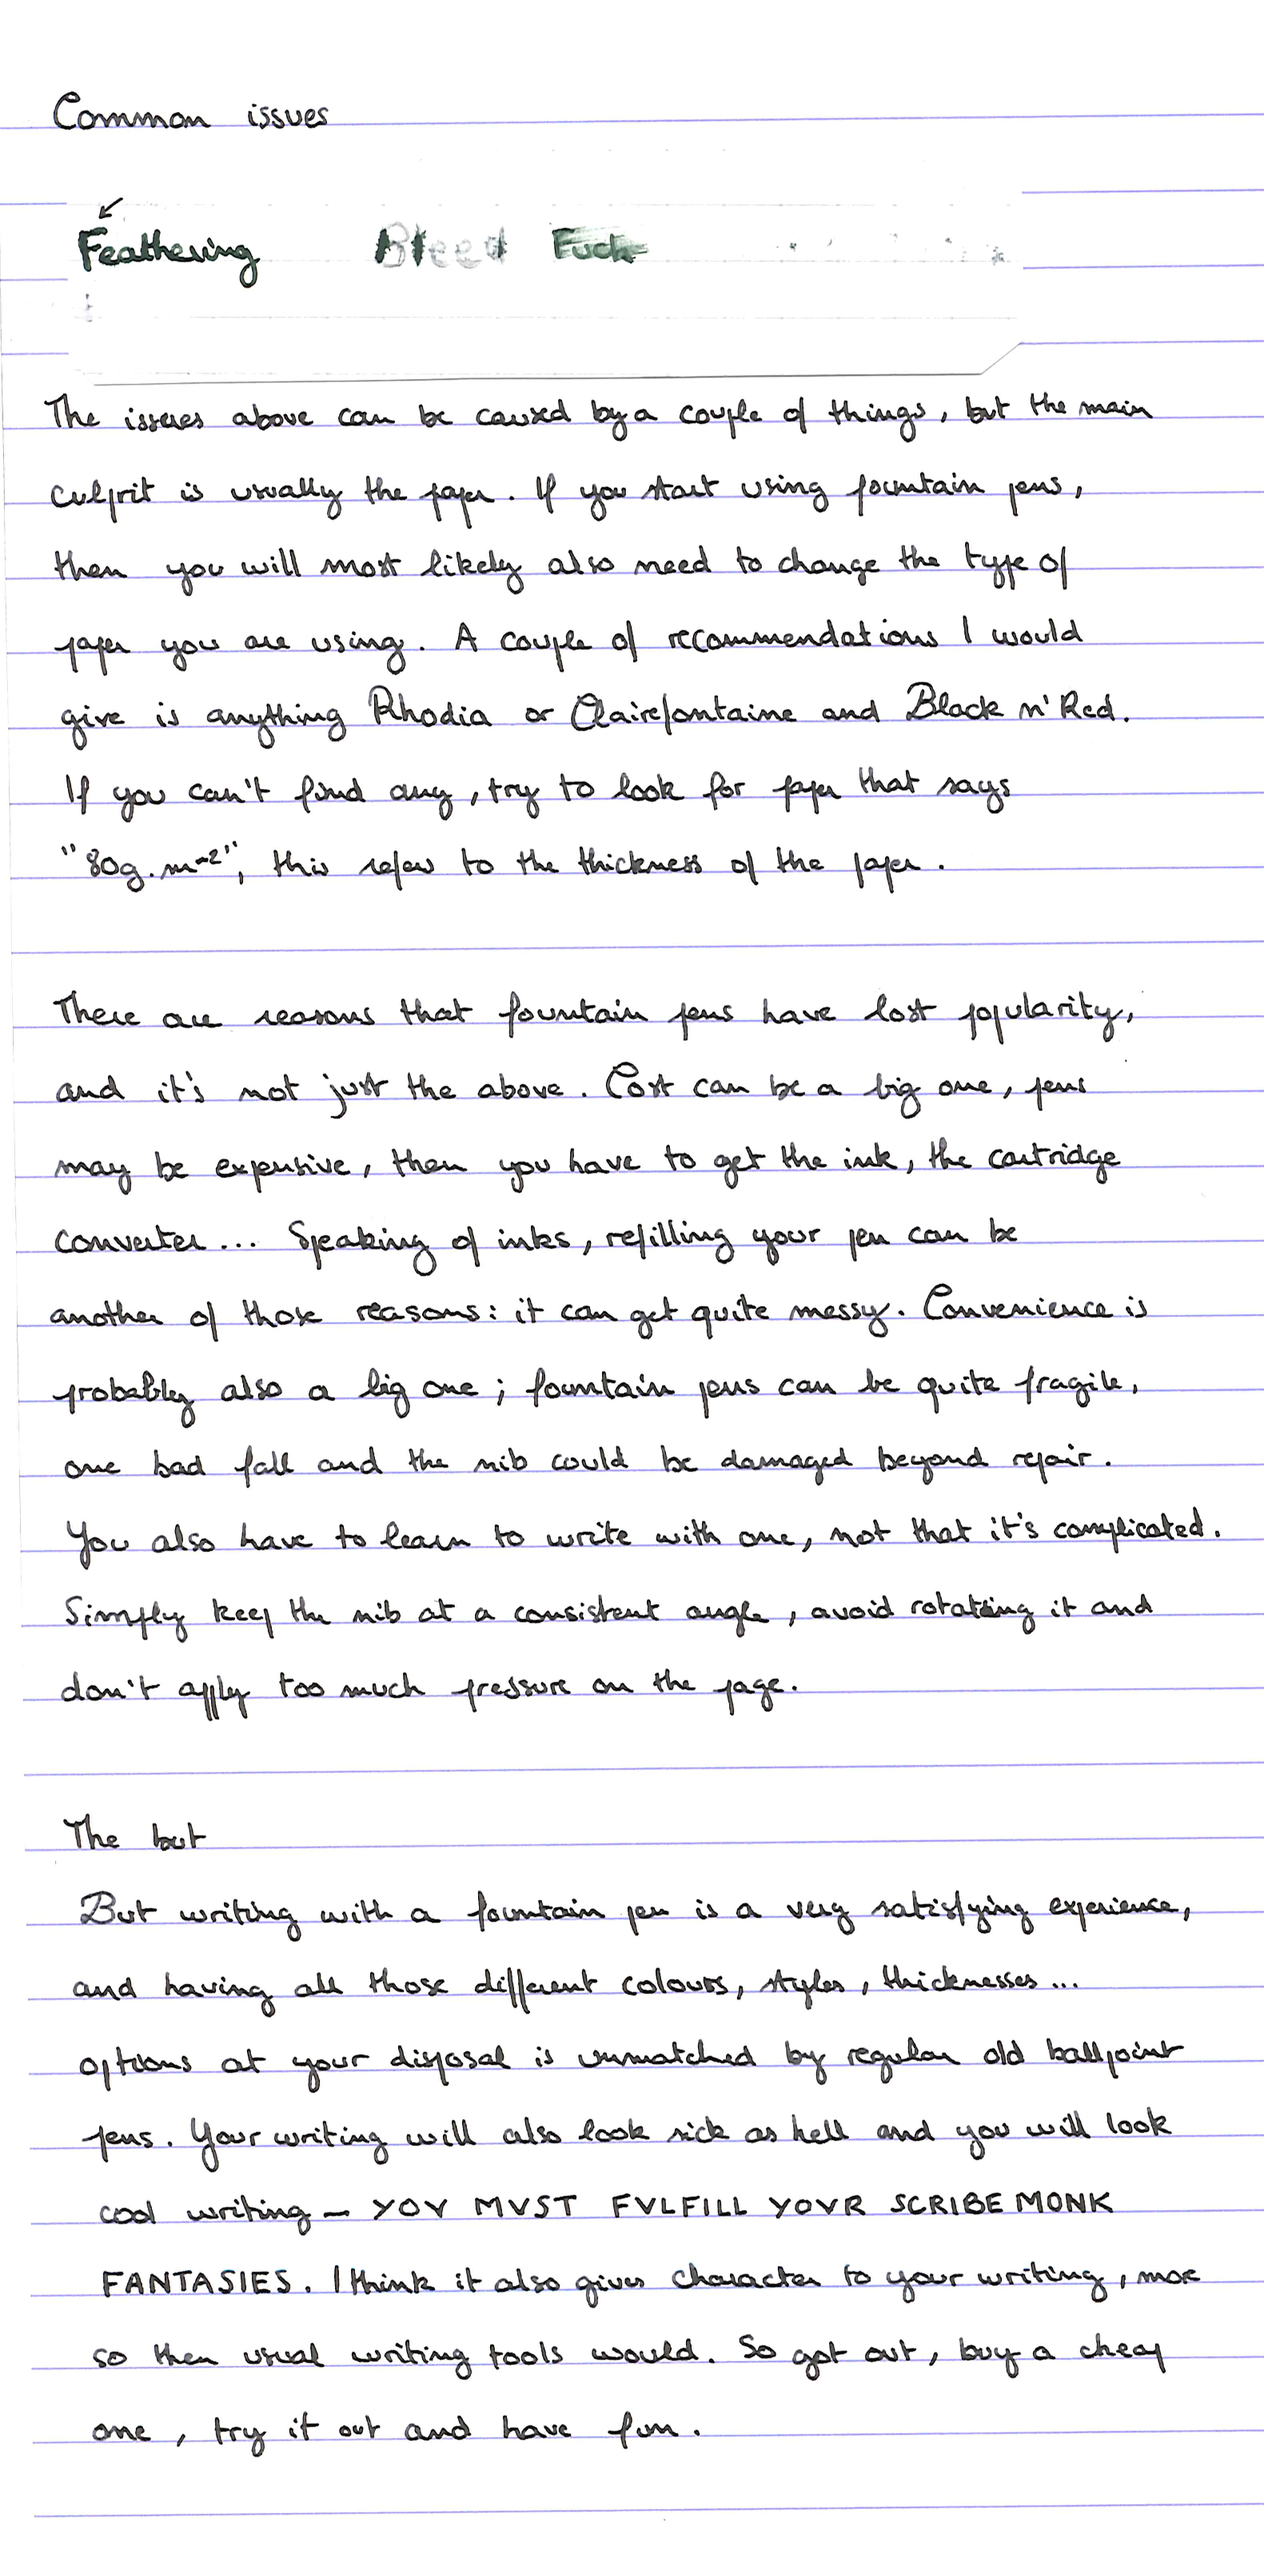 Common issues
Feathering Bleed Fuck
The issues above can be caused by a couple of things, but the main
culprit is usually the paper. If you start using fountain pens,
then you will most likely also need to change the type of
paper you are using. A couple of recommendations I would
give is anything Rhodia or Clairefontaine and Black n' Red.
If you can't find any, try to look for paper that says
"80g.m⁻²", this refers to the thickness of the paper.
There are reasons that fountain pens have lost popularity,
and it's not just the above. Cost can be a big one, pens
may be expensive, then you have to get the ink, the cartridge
converter... Speaking of inks, refilling your pen can be
another of those reasons: it can get quite messy. Convenience is
probably also a big one; fountain pens can be quite fragile,
one bad fall and the nib could be damaged beyond repair.
You also have to learn to write with one, not that it's complicated.
Simply keep the nib at a consistent angle, avoid rotating it and
don't apply too much pressure on the page.
The but
But writing with a fountain pen is a very satisfying experience,
and having all those different colours, styles, thicknesses...
options at your disposal is unmatched by regular old ballpoint
pens. Your writing will also look sick as hell and you will look
cool writing – YOV MVST FVLFILL YOVR SCRIBE MONK
FANTASIES. I think it also gives character to your writing, more
so then usual writing tools would. So got out, buy a cheap
one, try it out and have fun.